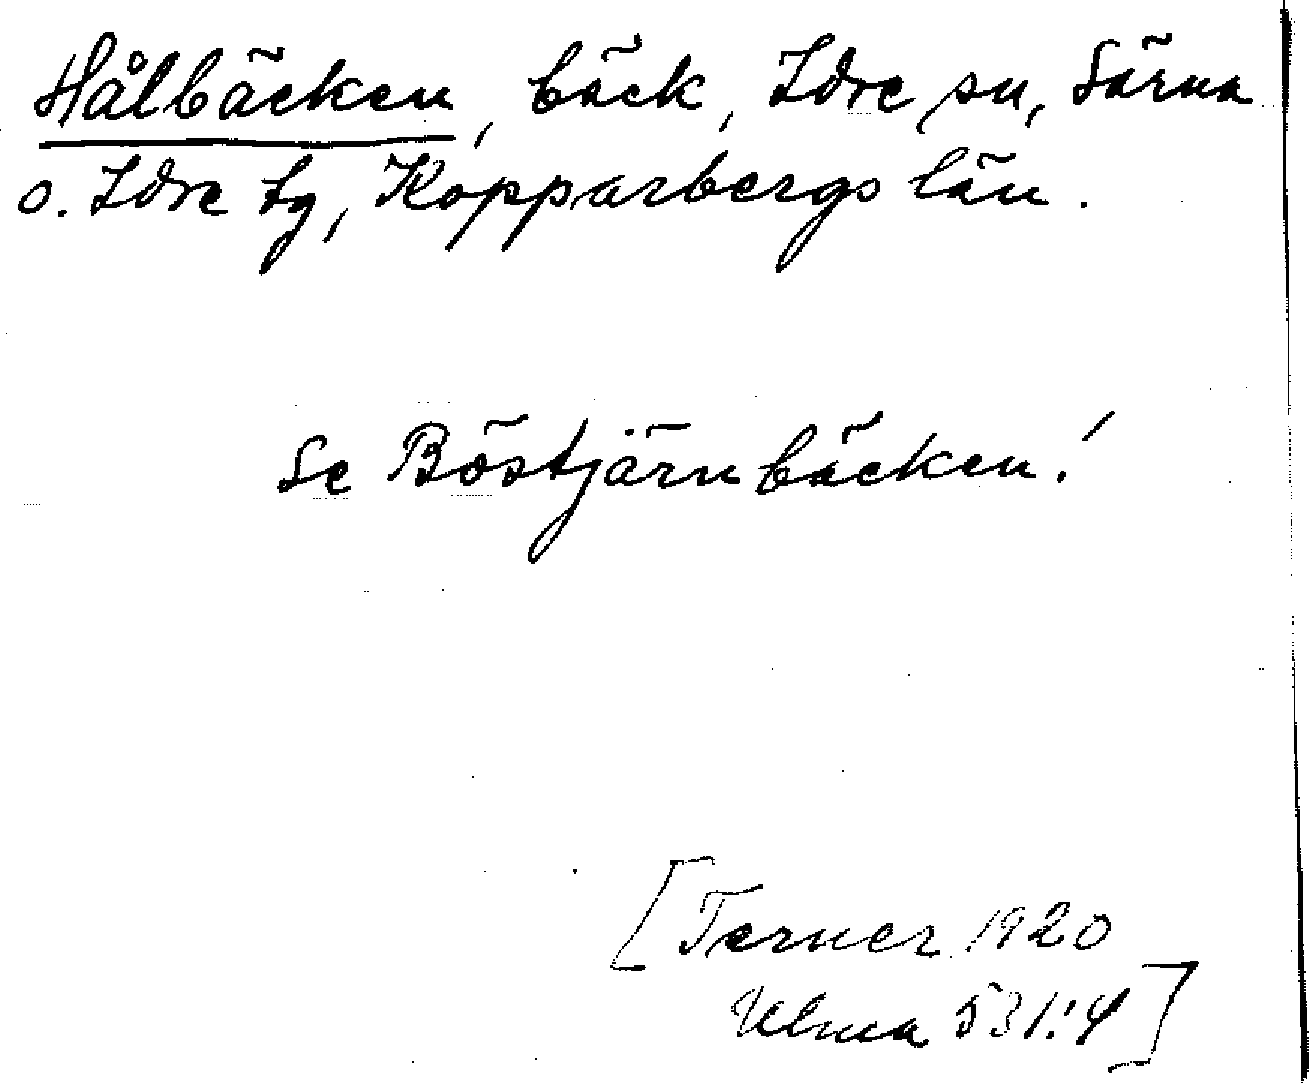 Hålbäcken, bäck, Idre sn, Särna
o. Idre tg, Kopparbergs län.
Se Böstjärnbäcken!
[Terner 1920
Ulma 531:4]